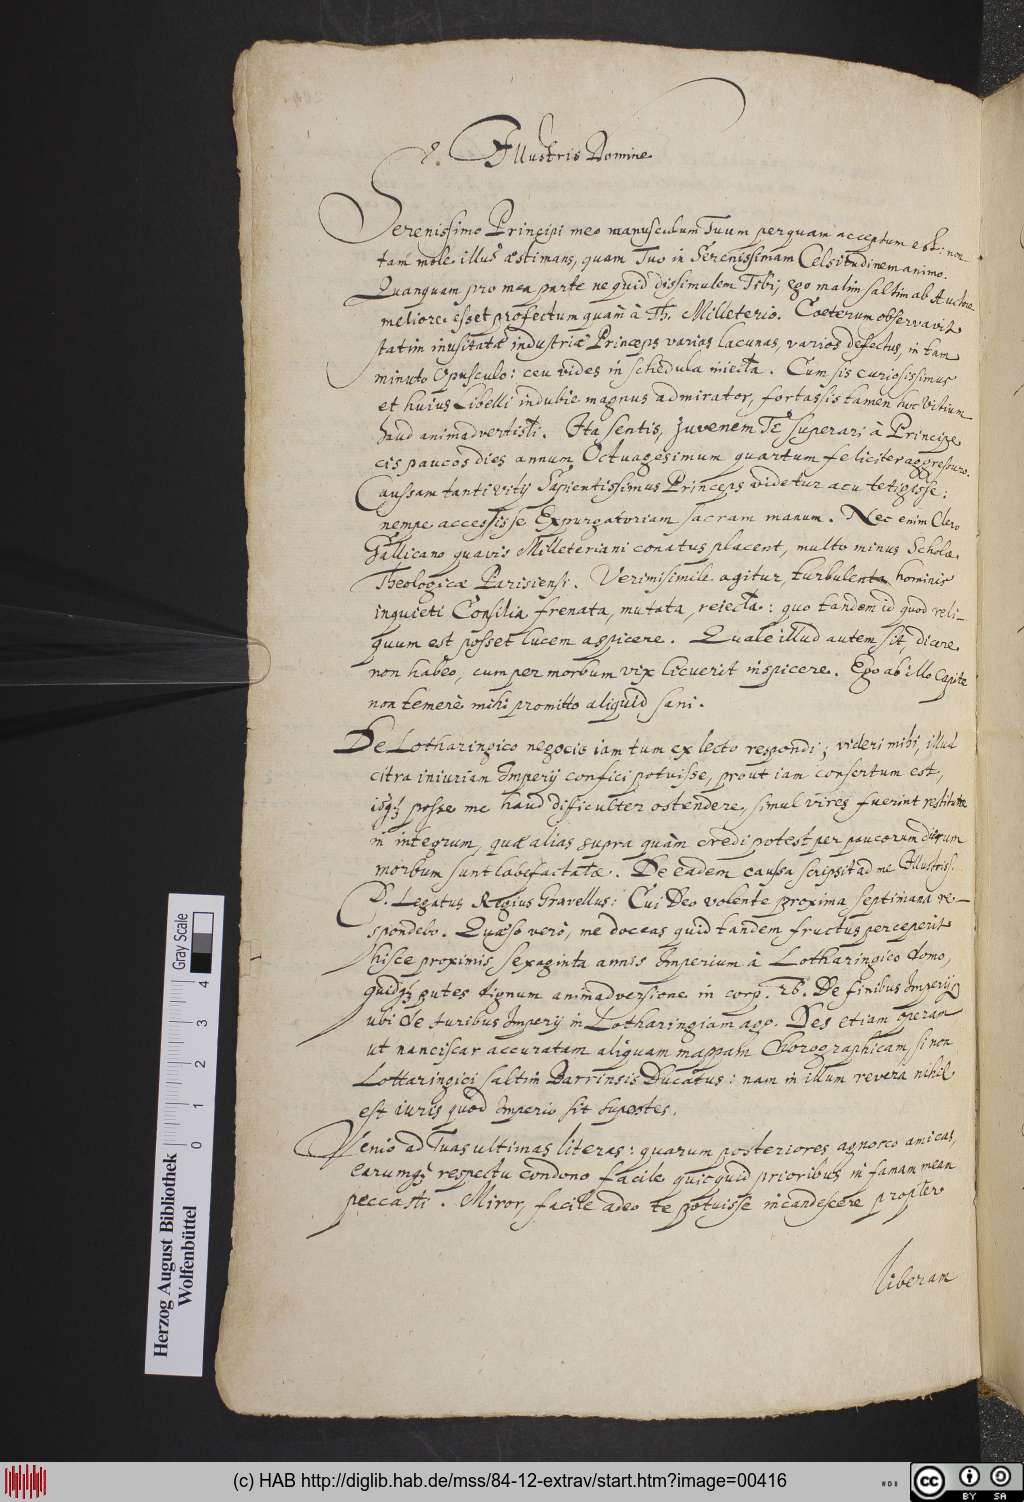 8. Illustris Domine
Serenissimo Principi meo manusculum Tuum perquam acceptum est: non
tam mole illus æstimans, quam Tuo in Serenissimam Celsitudinem animo.
Quanquam pro mea parte ne quid dissimulem Tibi, ego malim saltim ab Auctore
meliore esset profectum quam à Th. Milleterio. Cæterum observavit
statim inusitatæ industriæ Princeps varias lacunas, varios defectus, in tam
minuto Opusculo: ceu vides in schedula iniecta. Cum sis curiosissimus
et huius Libelli indubie magnus admirator, fortassis tamen huc vitium
haud animadvertisti. Ita sentis, juvenem TE superari à Principe
cis paucos dies annum Octuagesimum quartum feliciter aggressuro.
Caussam tanti vitij Sapientissimus Princeps videtur acu tetigisse:
nempe accessisse Expurgatoriam sacram manum. Nec enim Clero
Gallicano quavis Milleteriani conatus placent, multo minus Scholæ
Theologicæ Parisiensi. Verimisimile igitur, turbulenta hominis
inquieti Consilia frenata, mutata, reiecta: quo tandem id quod reli-
quum est posset lucem aspicere. Quale illud autem sit, dicere
non habeo, cum per morbum vix licuerit inspicere. Ego ab illo Capite
non temerè mihi promitto aliquid sani.
De Lotharingico negocio iam tum ex lecto respondi; videri mihi, illud
citra iniuriam Imperij confici potuisse, prout iam confertum est,
idq; posse me haud difficulter ostendere, simul vires fuerint restitutæ
in integrum, quæ alias supra quàm credi potest per paucorum dierum
morbum sunt labefactatæ. De eadem caussa scripsit ad me Illustriss.
D. Legatus Regius Gravellus: Cui Deo volente proxima septimana re-
spondebo. Quæso verò, me doceas quid tandem fructus perceperit
hisce proximis sexaginta annis Imperium à Lotharingico domo,
quidq; putes dignum animadversione in corp. 26. De finibus Imperij
ubi de Iuribus Imperij in Lotharingiam ago. Des etiam operam
ut nanciscar accuratam aliquam mappam Chorographicam, si non
Lottaringici saltim Barrinsis Ducatus: nam in illum revera nihil
est iuris quod Imperio sit supostes.
Venio ad Tuas ultimas literas: quarum posteriores agnosco amicas,
earumq; respectu condono facile quicquid prioribus in famam meam
peccasti. Miror, facile adeo te potuisse incandescere propter
liberam
Herzog August Bibliothek
Wolfenbüttel
0 1 2 3 4
Gray Scale
(c) HAB http://diglib.hab.de/mss/84-12-extrav/start.htm?image=00416
cc BY SA